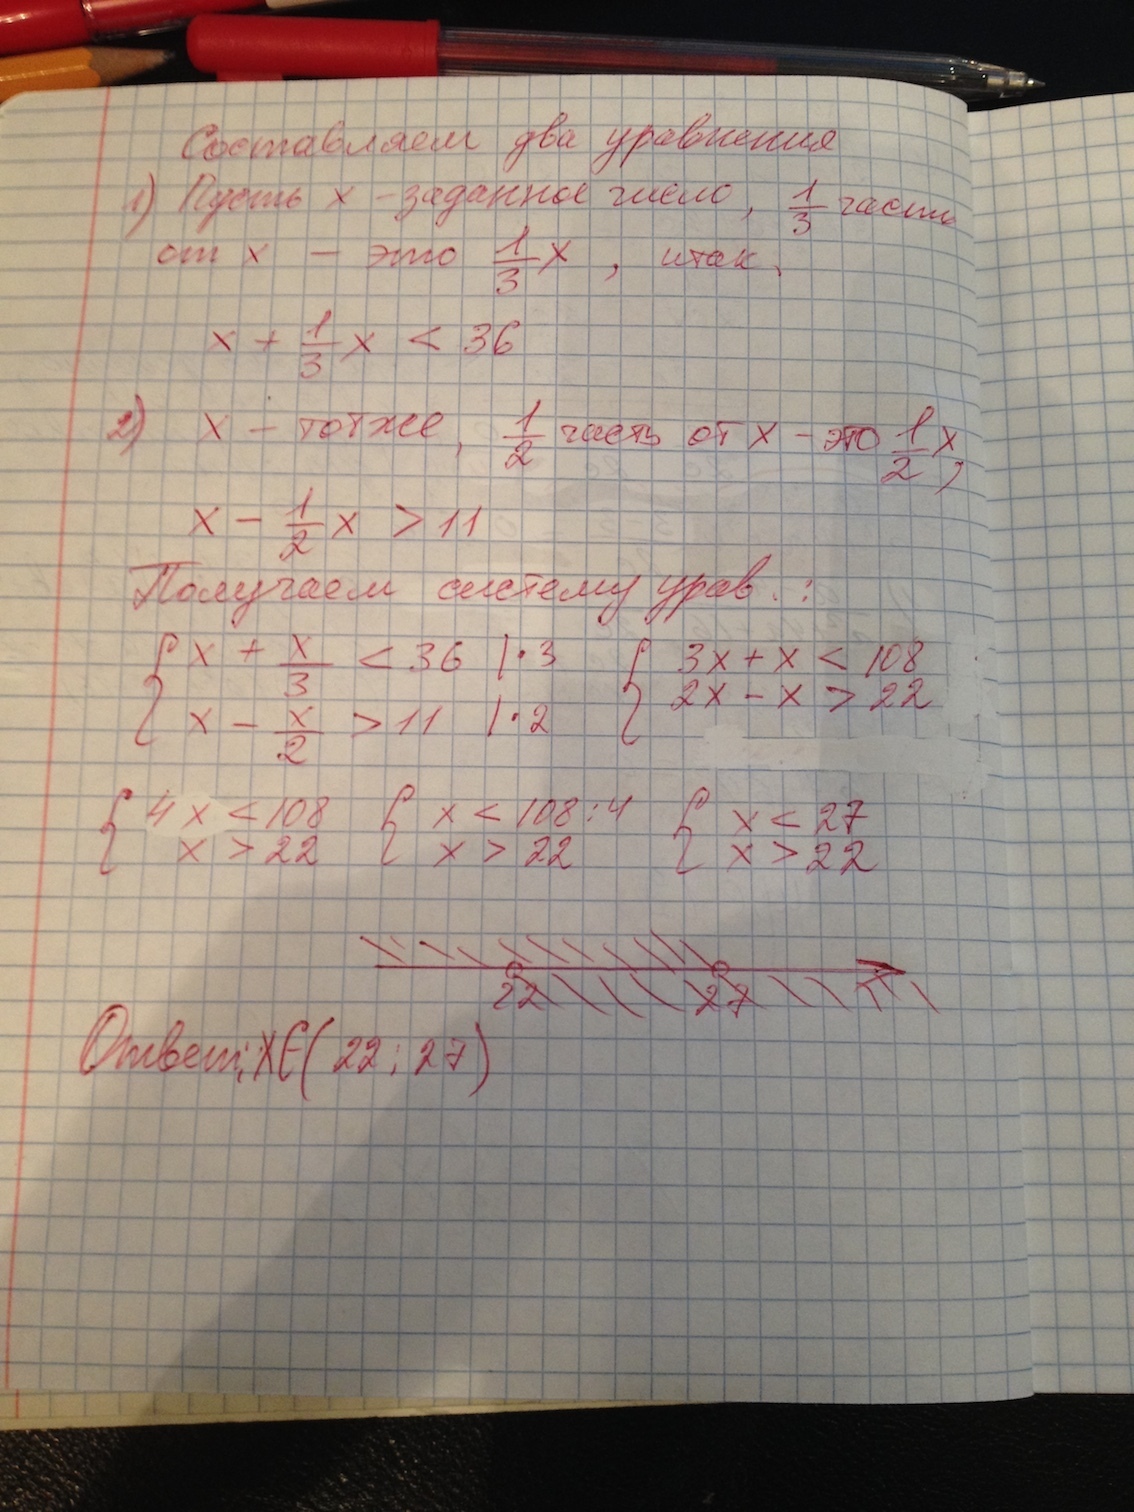 Составляем два уравнения
1) Пусть x - заданное число, 1/3 часть
от x - это 1/3 x, итак,
x + 1/3 x < 36
2) x - тот же, 1/2 часть от x - это 1/2 x,
x - 1/2 x > 11
Получаем систему урав.:
{ x + x/3 < 36 |·3 { 3x + x < 108
x - x/2 > 11 |·2 2x - x > 22
{ 4x < 108 { x < 108:4 { x < 27
x > 22 x > 22 x > 22
22 27
Ответ: x∈(22; 27)